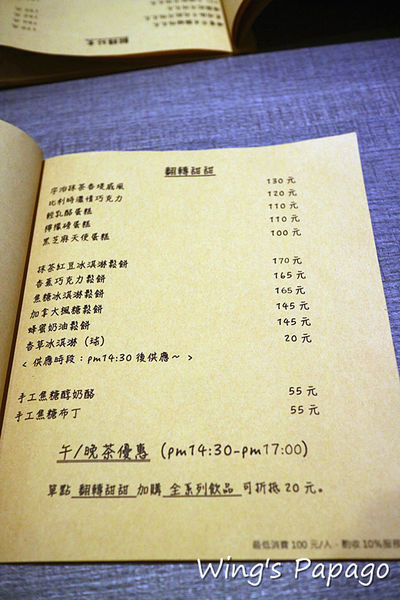 翻轉甜甜
宇治抹茶香堤戚風 130 元
比利時濃情巧克力 120 元
輕乳酪蛋糕 110 元
檸檬磅蛋糕 110 元
黑芝麻天使蛋糕 100 元
抹茶紅豆冰淇淋鬆餅 170 元
香蕉巧克力鬆餅 165 元
焦糖冰淇淋鬆餅 165 元
加拿大楓糖鬆餅 145 元
蜂蜜奶油鬆餅 145 元
香草冰淇淋 (球) 20 元
< 供應時段：pm14:30 後供應～ >
手工焦糖醇奶酪 55 元
手工焦糖布丁 55 元
午/晚茶優惠 (pm14:30-pm17:00)
單點 翻轉甜甜 加購 全系列飲品 可折抵 20 元。
最低消費 100 元/人．酌收 10%服務
Wing's Papago